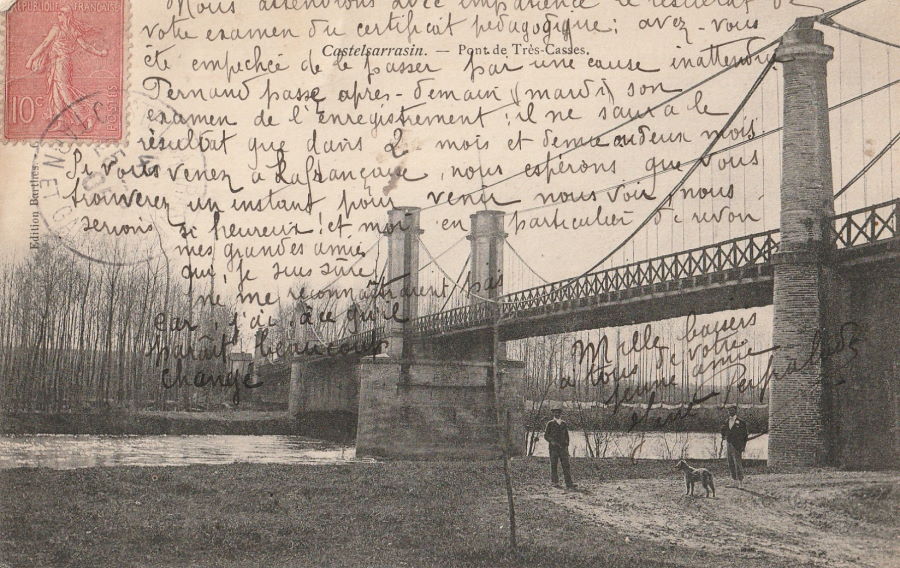 Nous attendons avec impatience le résultat de
votre examen du certificat pédagogique : avez-vous
Castelsarrasin. — Pont de Très-Casses.
été empechée de le passer par une cause inattendue
Fernand passe après-demain (mardi) son
examen de l'Enregistrement ; il ne saura le
résultat que dans 2 mois et demi ou deux mois.
Si vous venez à Lafrançaise, nous espérons que vous
trouverez un instant pour venir nous voir, nous
serions si heureux ! et moi en particulier de revoir
mes grandes amies
que je suis sûre
ne me reconnaîtraient pas
car j'ai, à ce qu'il
paraît beaucoup
changé
Mille baisers
à tous de votre
jeune amie
REPUBLIQUE FRANÇAISE
10c
POSTES
Edition Barthes.